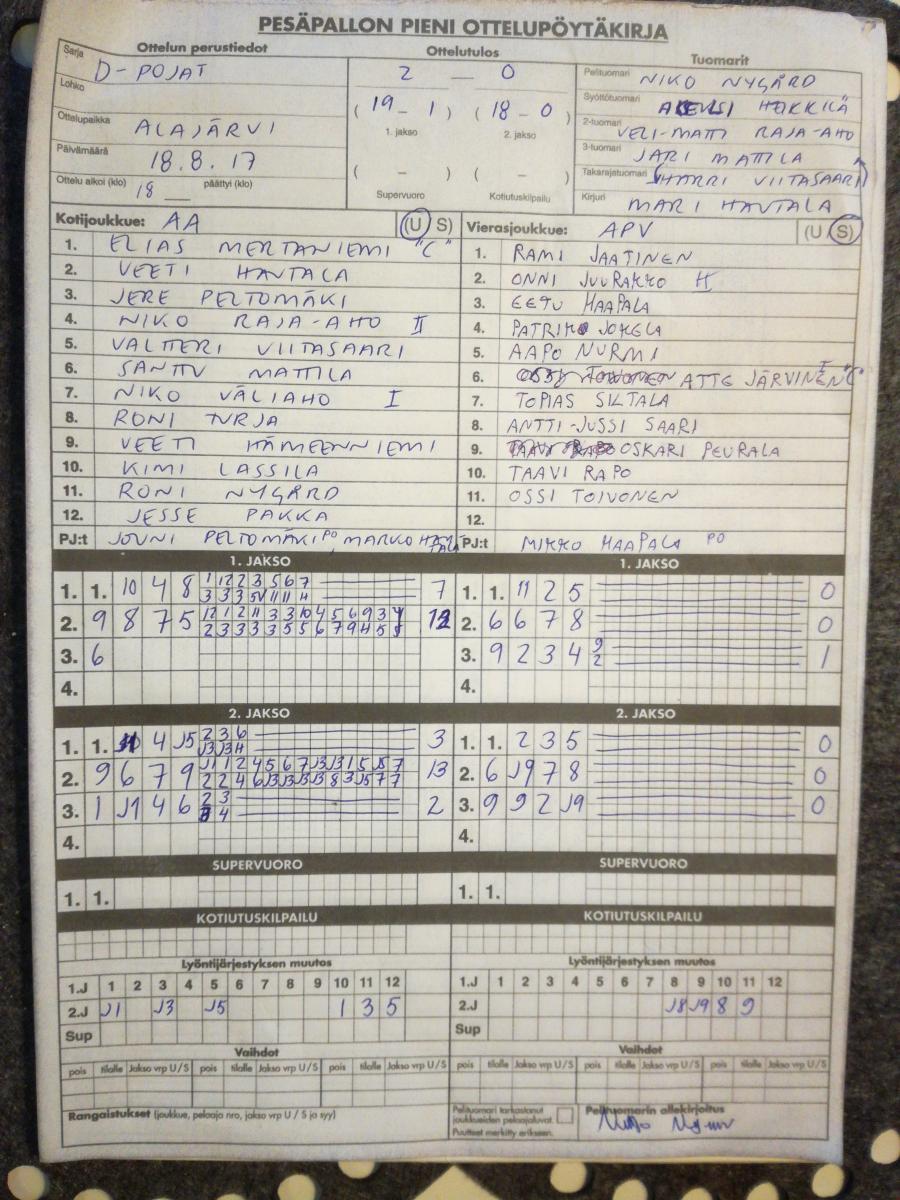 PESÄPALLON PIENI OTTELUPÖYTÄKIRJA
Ottelun perustiedot
Ottelutulos
Tuomarit
Sarja D-POJAT
2 — 0
Pelituomari NIKO NYGÅRD
Lohko
(19 - 1) (18 - 0)
Syöttötuomari
1. jakso 2. jakso
Ottelupaikka ALAJÄRVI
2-tuomari VELI-MATTI RAJA-AHO
Päivämäärä 18.8.17
3-tuomari JARI MATTILA
( - ) ( - )
Takarajatuomari (HARRI VIITASAARI)
Ottelu alkoi (klo) 18 päättyi (klo)
Supervuoro Kotiutuskilpailu
Kirjuri MARI HAUTALA
Kotijoukkue: AA (U S)
Vierasjoukkue: APV (U S)
1. ELIAS MERTANIEMI "C"
2. VEETI HAUTALA
3. JERE PELTOMÄKI
4. NIKO RAJA-AHO II
5. VALTTERI VIITASAARI
6. SANTTU MATTILA
7. NIKO VÄLIAHO I
8. RONI TURJA
9. VEETI HÄMEENNIEMI
10. KIMI LASSILA
11. RONI NYGÅRD
12. JESSE PAKKA
PJ:t JOUNI PELTOMÄKI PO, MARKO HAUTALA
1. RAMI JAATINEN
2. ONNI JUURAKKO II
3. EETU HAAPALA
4. PATRIK JOKELA
5. AAPO NURMI
6. ATTE JÄRVINEN I "C"
7. TOPIAS SILTALA
8. ANTTI-JUSSI SAARI
9. OSKARI PEURALA
10. TAAVI RAPO
11. OSSI TOIVONEN
12.
PJ:t MIKKO HAAPALA PO
1. JAKSO
1. 1. 10 4 8 1 12 2 3 5 6 7 7
2. 9 8 7 5 12 1 2 11 3 3 10 4 5 6 9 3 4 12
2 3 3 3 3 5 5 6 7 9 11 5 5
3. 6
4.
1. JAKSO
1. 1. 11 2 5 0
2. 6 6 7 8 0
3. 9 2 3 4 9 1
2
4.
2. JAKSO
1. 1. 4 J5 2 3 6 3
J3 J3 11
2. 9 6 7 9 13
3. 1 J1 4 6 2 3 2
4
4.
2. JAKSO
1. 1. 2 3 5 0
2. 6 J9 7 8 0
3. 9 9 2 J9 0
4.
SUPERVUORO
1. 1.
SUPERVUORO
1. 1.
KOTIUTUSKILPAILU
KOTIUTUSKILPAILU
Lyöntijärjestyksen muutos
1.J 1 2 3 4 5 6 7 8 9 10 11 12
2.J J1 J3 J5 1 3 5
Sup
Lyöntijärjestyksen muutos
1.J 1 2 3 4 5 6 7 8 9 10 11 12
2.J J8 J9 8 9
Sup
Vaihdot
pois tilalle Jakso vrp U/S pois tilalle Jakso vrp U/S pois tilalle Jakso vrp U/S
Vaihdot
pois tilalle Jakso vrp U/S pois tilalle Jakso vrp U/S pois tilalle Jakso vrp U/S
Rangaistukset (joukkue, pelaaja nro, jakso vrp U / S ja syy)
Pelituomari tarkastanut
joukkueiden pelaajaluvat.
Puutteet merkitty erikseen.
Pelituomarin allekirjoitus